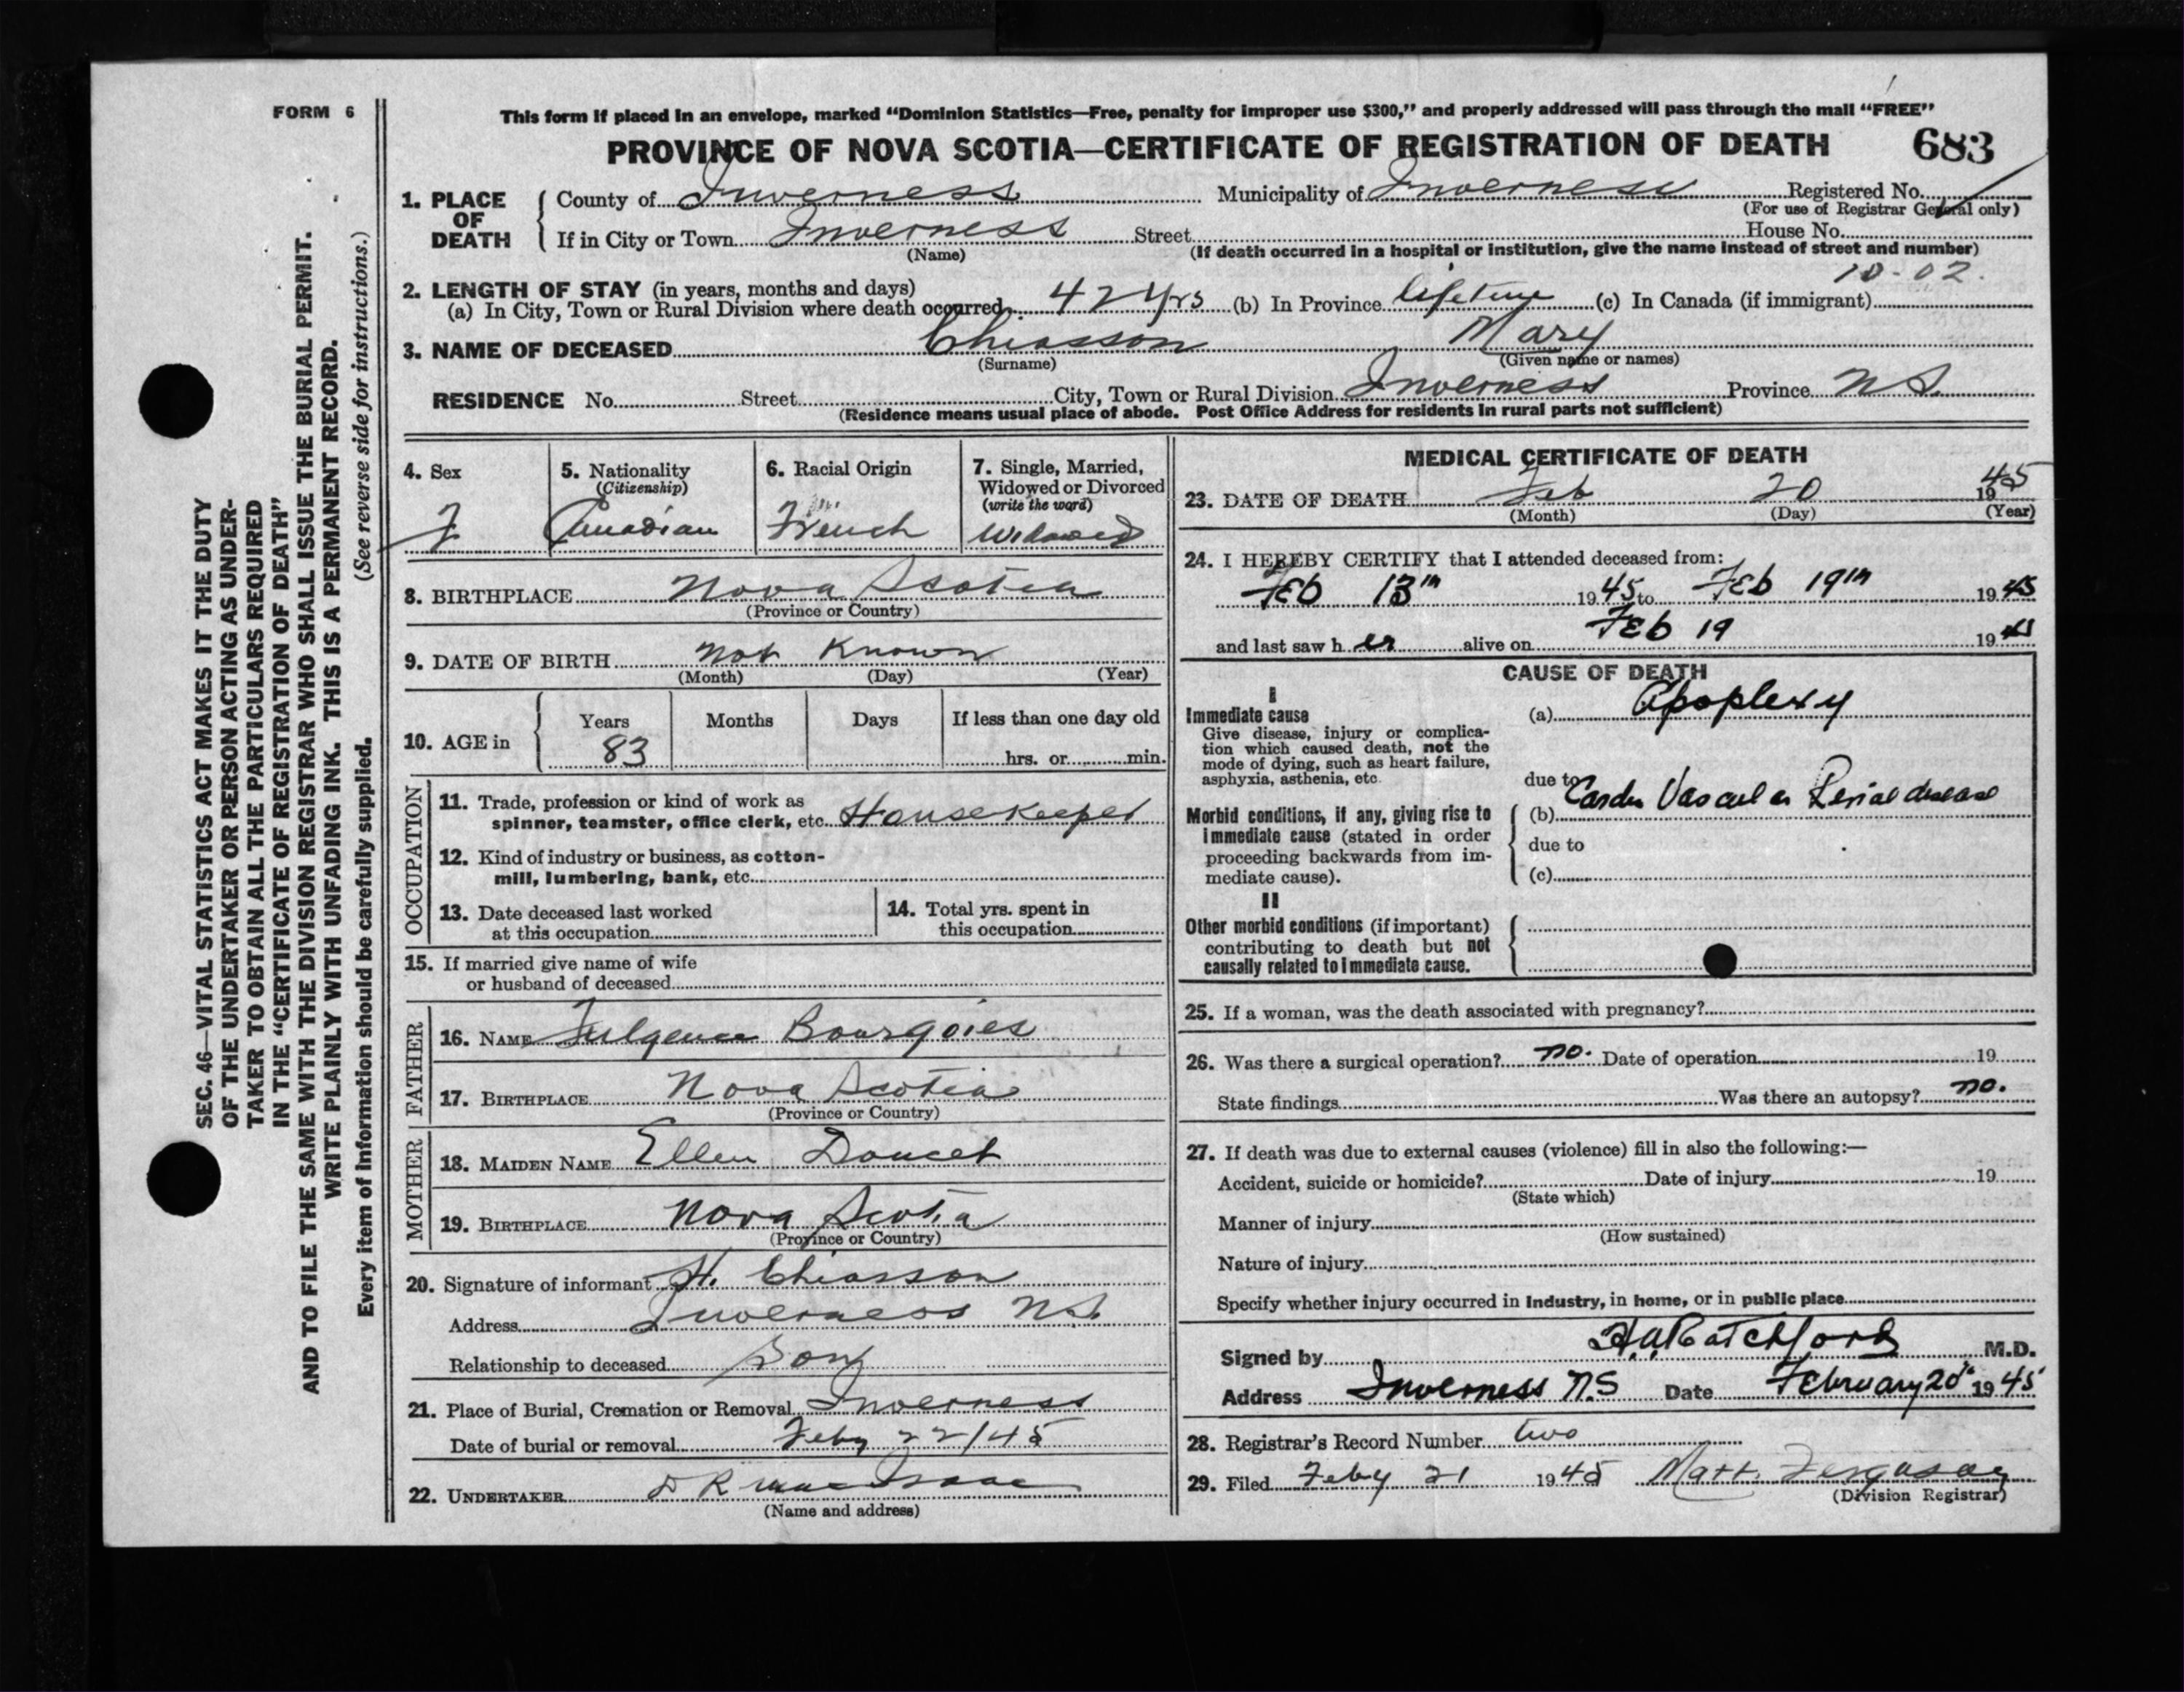 FORM 6
This form if placed in an envelope, marked "Dominion Statistics—Free, penalty for improper use $300," and properly addressed will pass through the mail "FREE"
PROVINCE OF NOVA SCOTIA—CERTIFICATE OF REGISTRATION OF DEATH 683
1. PLACE OF DEATH { County of Inverness Municipality of Inverness Registered No.
(For use of Registrar General only)
If in City or Town Inverness Street House No.
(Name) (If death occurred in a hospital or institution, give the name instead of street and number)
10-02.
2. LENGTH OF STAY (in years, months and days)
(a) In City, Town or Rural Division where death occurred 42 yrs (b) In Province lifetime (c) In Canada (if immigrant)
3. NAME OF DECEASED Chiasson Mary
(Surname) (Given name or names)
RESIDENCE No. Street City, Town or Rural Division Inverness Province N S.
(Residence means usual place of abode. Post Office Address for residents in rural parts not sufficient)
4. Sex
F
5. Nationality
(Citizenship)
Canadian
6. Racial Origin
French
7. Single, Married,
Widowed or Divorced
(write the word)
Widowed
8. BIRTHPLACE Nova Scotia
(Province or Country)
9. DATE OF BIRTH Not Known
(Month) (Day) (Year)
10. AGE in { Years Months Days If less than one day old
83 hrs. or min.
OCCUPATION
11. Trade, profession or kind of work as
spinner, teamster, office clerk, etc. Housekeeper
12. Kind of industry or business, as cotton-
mill, lumbering, bank, etc.
13. Date deceased last worked
at this occupation
14. Total yrs. spent in
this occupation
15. If married give name of wife
or husband of deceased
FATHER
16. NAME Fulgence Bourgoies
17. BIRTHPLACE Nova Scotia
(Province or Country)
MOTHER
18. MAIDEN NAME Ellen Doucet
19. BIRTHPLACE Nova Scotia
(Province or Country)
20. Signature of informant H. Chiasson
Address Inverness N.S.
Relationship to deceased Son
21. Place of Burial, Cremation or Removal Inverness
Date of burial or removal Feby 22/45
22. UNDERTAKER D R MacIsaac
(Name and address)
MEDICAL CERTIFICATE OF DEATH
23. DATE OF DEATH Feb 20 1945
(Month) (Day) (Year)
24. I HEREBY CERTIFY that I attended deceased from:
Feb 13th 1945 to Feb 19th 1945
and last saw her alive on Feb 19 1945
CAUSE OF DEATH
I
Immediate cause
Give disease, injury or complica-
tion which caused death, not the
mode of dying, such as heart failure,
asphyxia, asthenia, etc.
(a) Apoplexy
due to
Morbid conditions, if any, giving rise to
immediate cause (stated in order
proceeding backwards from im-
mediate cause).
(b) Cardio Vascular Renal disease
due to
(c)
II
Other morbid conditions (if important)
contributing to death but not
causally related to immediate cause.
25. If a woman, was the death associated with pregnancy?
26. Was there a surgical operation? no. Date of operation 19
State findings Was there an autopsy? no.
27. If death was due to external causes (violence) fill in also the following:—
Accident, suicide or homicide? Date of injury 19
(State which)
Manner of injury
(How sustained)
Nature of injury
Specify whether injury occurred in industry, in home, or in public place
Signed by H.A. Ratchford M.D.
Address Inverness N.S Date February 20th 1945
28. Registrar's Record Number two
29. Filed Feby 21 1945 Matt. Ferguson
(Division Registrar)
SEC. 46—VITAL STATISTICS ACT MAKES IT THE DUTY
OF THE UNDERTAKER OR PERSON ACTING AS UNDER-
TAKER TO OBTAIN ALL THE PARTICULARS REQUIRED
IN THE "CERTIFICATE OF REGISTRATION OF DEATH"
AND TO FILE THE SAME WITH THE DIVISION REGISTRAR WHO SHALL ISSUE THE BURIAL PERMIT.
WRITE PLAINLY WITH UNFADING INK. THIS IS A PERMANENT RECORD.
Every item of information should be carefully supplied. (See reverse side for instructions.)